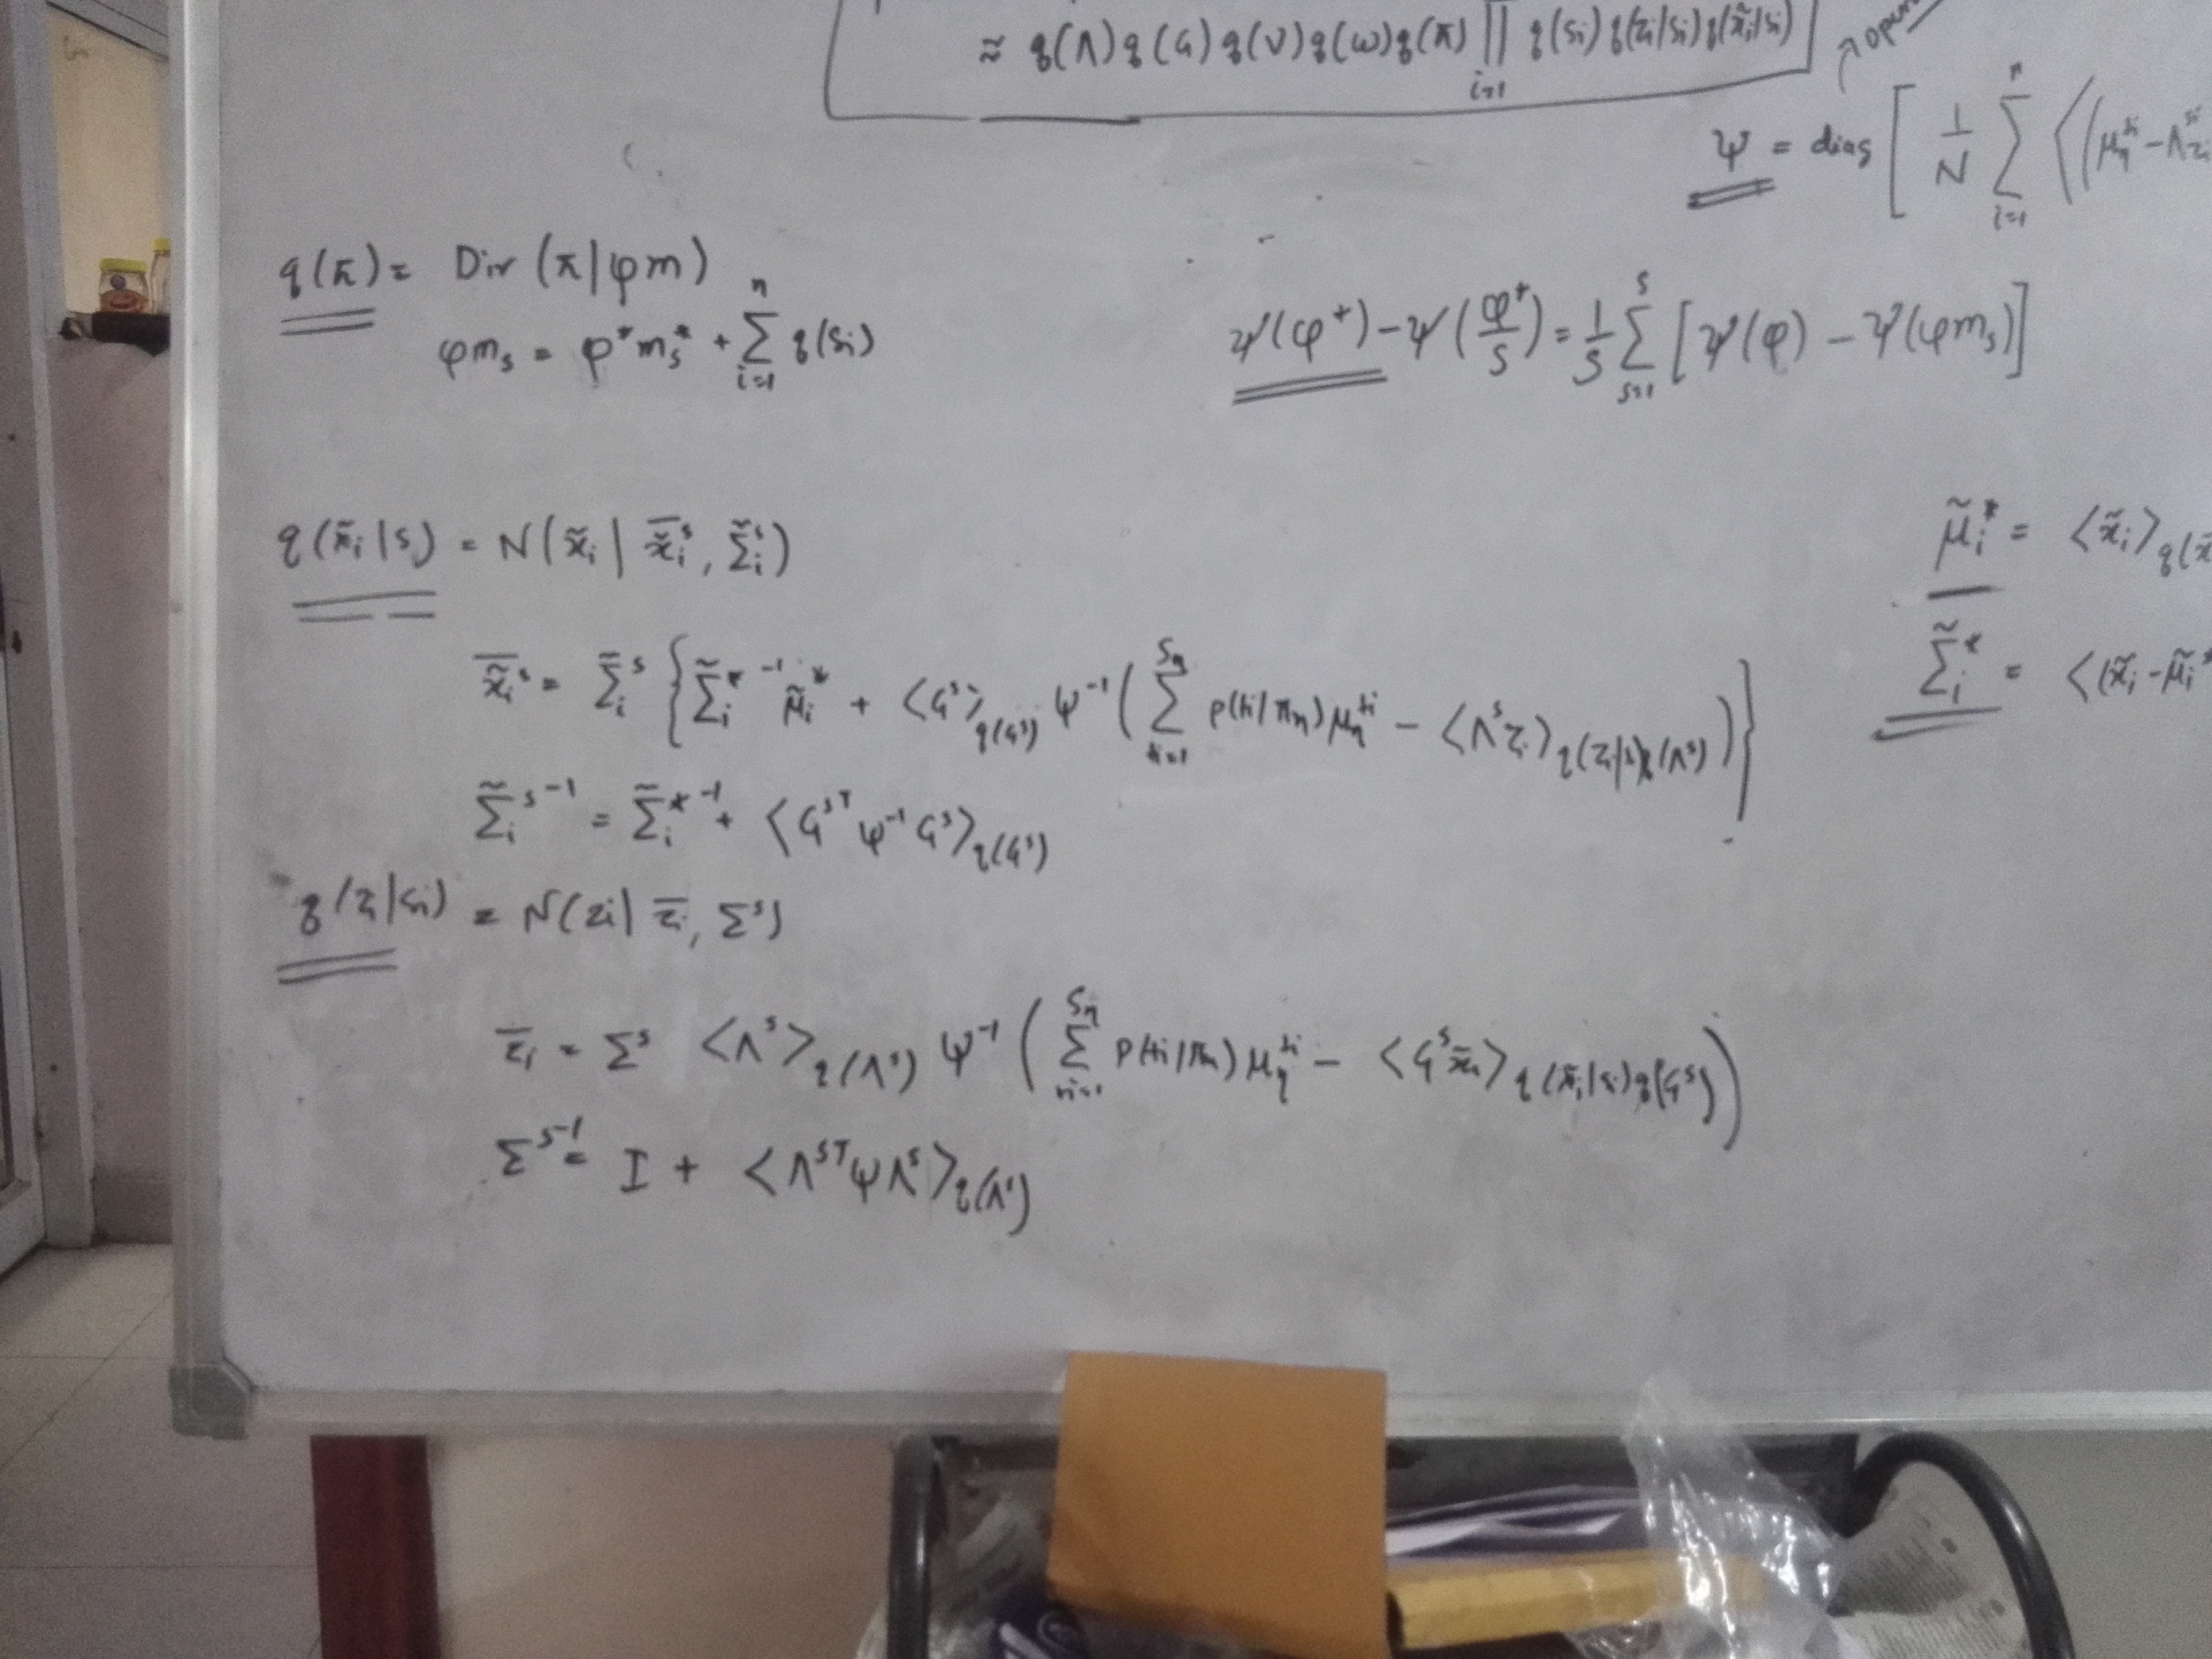 ≈ q(Λ) q(G) q(ν) q(ω) q(π) ∏_{i=1} q(si) q(zi|si) q(x̃i|si)
Ψ = diag [ 1/N Σ_{i=1}^{n} ⟨(μ_η^{ti} − Λ^{si} zi
q(π) = Dir (π|φm)
φm_s = φ* m_s* + Σ_{i=1}^{n} q(si)
ψ(φ*) − ψ(φ*/S) = 1/S Σ_{s=1}^{S} [ψ(φ) − ψ(φm_s)]
q(x̃i|s) = N(x̃i | x̃̄_i^s, Σ̃_i^s)
μ̃_i* = ⟨x̃i⟩_{q(x̃
x̃̄_i^s = Σ̃_i^s { Σ̃_i*^{-1} μ̃_i* + ⟨G^s⟩_{q(G^s)} Ψ^{-1} ( Σ_{ti=1}^{Sη} p(ti|πη) μ_η^{ti} − ⟨Λ^s zi⟩_{q(zi|s)q(Λ^s)} ) }
Σ̃_i* = ⟨(x̃i − μ̃_i*
Σ̃_i^{s -1} = Σ̃_i^{* -1} + ⟨G^{sT} Ψ^{-1} G^s⟩_{q(G^s)}
q(zi|si) = N(zi| z̄i, Σ^s)
z̄i = Σ^s ⟨Λ^s⟩_{q(Λ^s)} Ψ^{-1} ( Σ_{ti=1}^{Sη} p(ti|πη) μ_η^{ti} − ⟨G^s x̃i⟩_{q(x̃i|si)q(G^s)} )
Σ^{s-1} = I + ⟨Λ^{sT} Ψ Λ^s⟩_{q(Λ^s)}